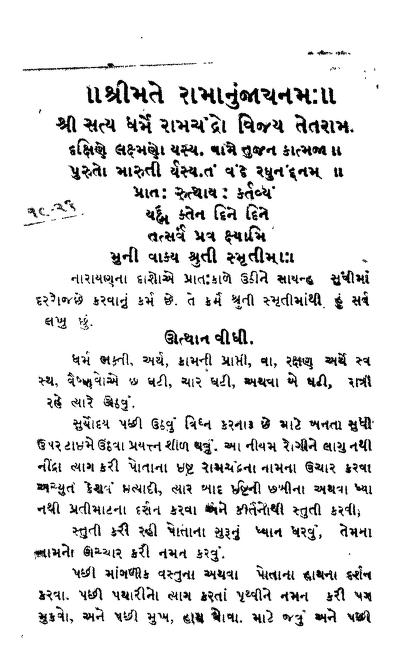 ॥શ્રીમતે રામાનુંજાચનમઃ॥
શ્રી સત્ય ધર્મૈ રામચંદ્રો વિજય તેતરામ.
દક્ષિણે લક્ષ્મણો યસ્ય. વામૈ તુજન કાત્મજા॥
પુરુતો મારુતી ર્યસ્ય.તં વંદે રધુનંદનમ્ ॥
પ્રાતઃ રુત્થાય: કર્તવ્યં
યર્હં ક્તેન દિને દિને
તત્સર્વં પ્રવ ક્ષ્યામિ
૧૯-૨૬
મુની વાક્ય શ્રુતી સ્મૃતીમ્ઃ॥
નારાયણના દાશોએ પ્રાતઃકાળે ઉઠીને સાયેન્હ સુધીમાં
દરરોજછે કરવાનું કર્મ છે. તે કર્મ શ્રુતી સ્મૃતીમાંથી હું સર્વ
લખુ છું.
ઊત્થાન વીધી.
ધર્મ ભક્તી, અર્થ, કામની પ્રાપ્તી, વા, રક્ષણ અર્થે સ્વ
સ્થ, વૈષ્ણવોએ છ ઘટી, ચાર ઘટી, અથવા બે ઘટી, રાત્રી
રહે ત્યારે ઊઠવું.
સુર્યોદય પછી ઉઠવું વિઘ્ન કરનારૂ છે માટે બનતા સુધી
ઉપર ટાઇમે ઉઠવા પ્રયત્ન શીળ થવું. આ નીયમ રોગીને લાગુ નથી
નીંદ્રા ત્યાગ કરી પોતાના ઇષ્ટ રામચંદ્રના નામના ઉચાર કરવા
અચ્યુત કેશવં ઇત્યાદી, ત્યાર બાદ ઇષ્ટિની છબીના અથવા ધ્યા
નથી પ્રતીમાટના દર્સન કરવા અને કીર્તનોથી સ્તુતી કરવી;
સ્તુતી કરી રહી પોતાના ગુરૂનું ધ્યાન ધરવું, તેમના
નામનો ઊચ્ચાર કરી નમન કરવું.
પછી માંગળીક વસ્તુના અથવા પોતાના હાથના દર્શન
કરવા. પછી પથારીનો ત્યાગ કરતાં પૃથ્વીને નમન કરી પગ
મુકવો, અને પછી મુખ, હાથ ધોવા. માટે જવું અને પછી